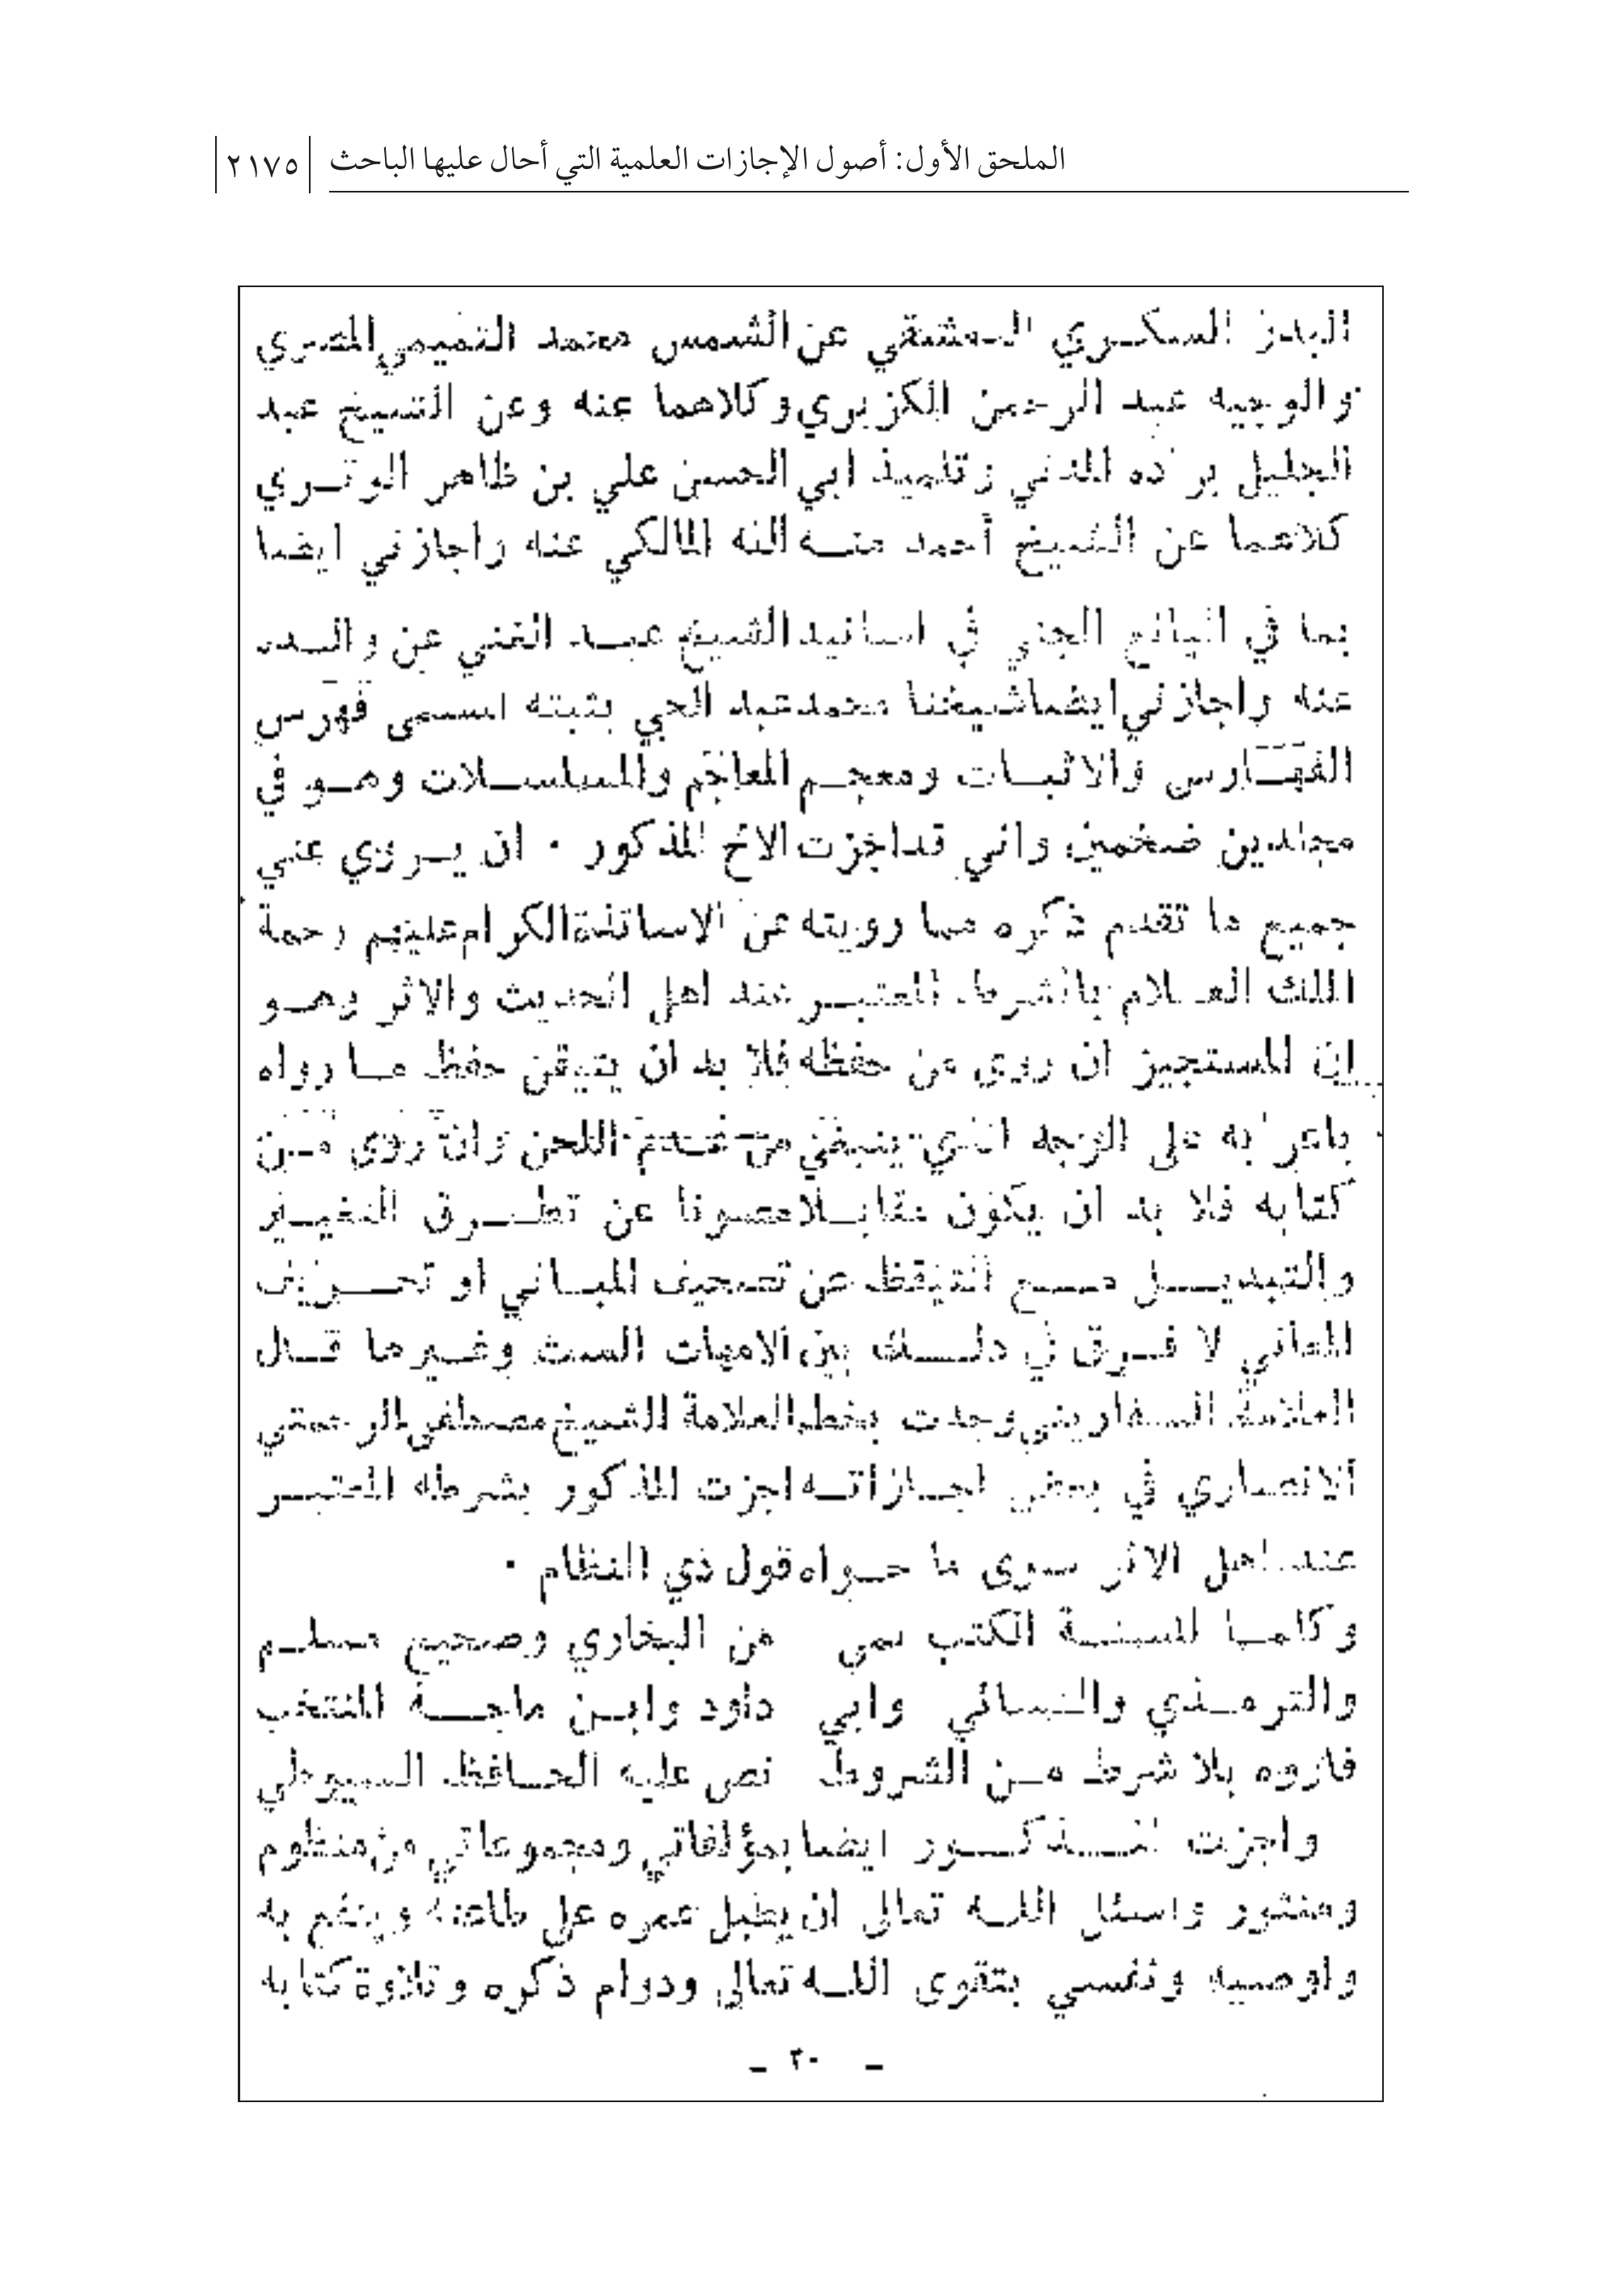 الملحق الأول: أصول الإجازات العلمية التي أحال عليها الباحث ٢١٧٥
البدر السكري الدمشقي عن الشمس محمد التميمي المصري
والوجيه عبد الرحمن الكزبري وكلاهما عنه وعن الشيخ عبد
الجليل براده المدني وتلميذ ابي الحسن علي بن ظاهر الوتري
كلاهما عن الشيخ أحمد منة الله المالكي عنه واجازني ايضا
بما في اليانع الجني في اسانيد الشيخ عبد الغني عن والده
عنه واجازني ايضا شيخنا محمد عبد الحي بثبته المسمى فهرس
الفهارس والاثبات ومعجم المعاجم والمسلسلات وهو في
مجلدين ضخمين واني قد اجزت الاخ المذكور . ان يروي عني
جميع ما تقدم ذكره مما رويته عن الاساتذة الكرام عليهم رحمة
الملك العلام بالشرط المعتبر عند اهل الحديث والاثر وهو
ان المستجيز ان روى من حفظه فلا بد ان يتيقن حفظ ما رواه
باعرابه على الوجه الذي ينبغي من عدم اللحن وان روى من
كتابه فلا بد ان يكون مقابلا مصونا عن تطرق التغيير
والتبديل مع التيقظ عن تصحيف المباني او تحريف
المعاني لا فرق في ذلك بين الامهات الست وغيرها قال
العلامة السفاريني وجدت بخط العلامة الشيخ مصطفى الرحمتي
الانصاري في بعض اجازاته اجزت المذكور بشرطه المعتبر
عند اهل الاثر سوى ما حواه قول ذي النظام .
وكلما لستة الكتب نمي من البخاري وصحيح مسلم
والترمذي والنسائي وابي داود وابن ماجة المنتخب
فاروه بلا شرط من الشروط نص عليه الحافظ السيوطي
واجزت المذكور ايضا بمؤلفاتي ومجموعاتي من منظوم
ومنثور واسئل الله تعالى ان يطيل عمره على طاعته وينفع به
واوصيه ونفسي بتقوى الله تعالى ودوام ذكره وتلاوة كتابه